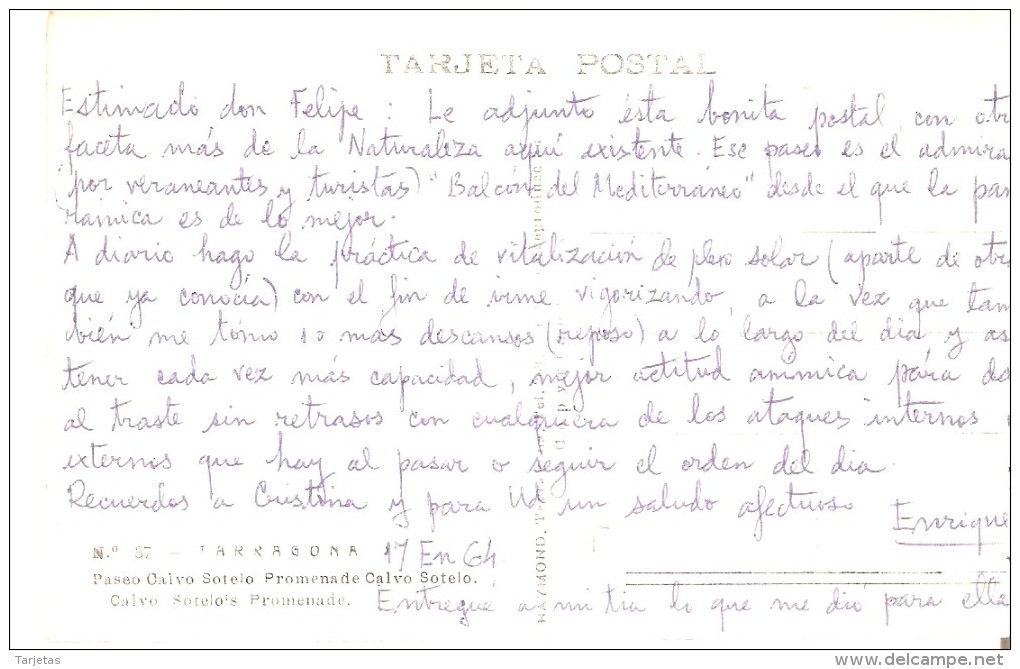 TARJETA POSTAL
Estimado don Felipe: Le adjunto ésta bonita postal con otr
faceta más de la Naturaleza aquí existente. Ese paseo es el admira
(por veraneantes y turistas) "Balcón del Mediterráneo" desde el que la pan
rámica es de lo mejor.
A diario hago la práctica de vitalización de plexo solar (aparte de otra
que ya conocía) con el fin de irme vigorizando, a la vez que tam
bién me tomo 1 o más descansos (reposo) a lo largo del dia y as
tener cada vez más capacidad, mejor actitud anímica para da
al traste sin retrasos con cualquiera de los ataques internos o
externos que hay al pasar o seguir el orden del dia.
Recuerdos a Cristina y para Ud un saludo afectuoso
Enrique
17 En 64
Nº 37 - TARRAGONA
Paseo Calvo Sotelo Promenade Calvo Sotelo.
Calvo Sotelo's Promenade.
Entregue a mi tia lo que me dió para ella
HAYMOND.
Tarjetas
www.delcampe.net